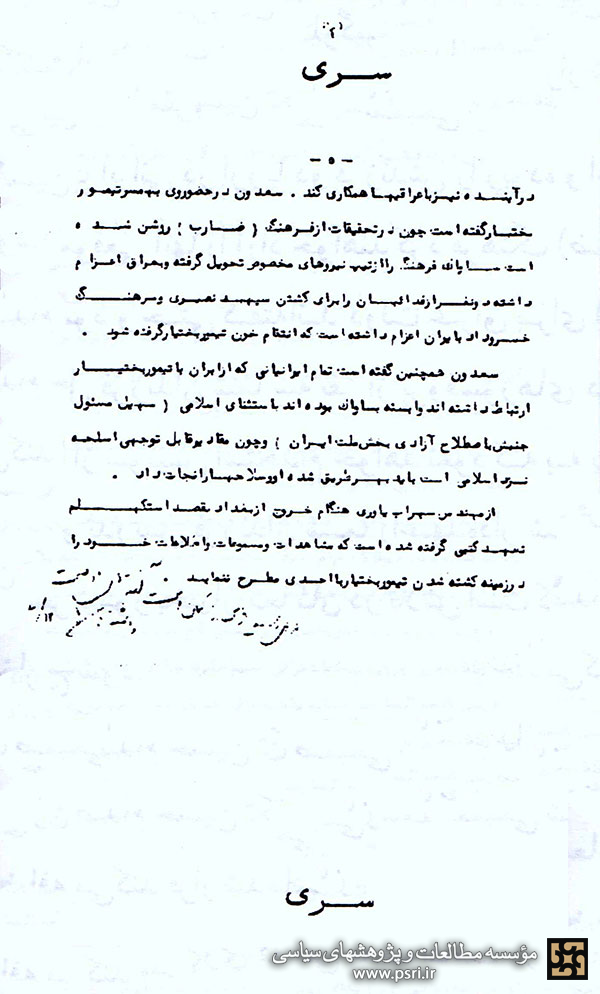 سری
- ۵ -
درآینده نیز با عراقیها همکاری کند . سعدون در حضور وی به پسر تیمور
بختیار گفته است چون در تحقیقات از فرهنگ ( ضارب ) روشن شده
است ساواک فرهنگ را از تیپ نیروهای مخصوص تحویل گرفته و بعراق اعزام
داشته دو نفر از فدائیان را برای کشتن سپهبد نصیری و سرهنگ
خسروداد بایران اعزام داشته است که انتقام خون تیمور بختیار گرفته شود .
سعدون همچنین گفته است تمام ایرانیانی که از ایران با تیمور بختیار
ارتباط داشته اند وابسته بساواک بوده اند باستثنای اسلامی ( سهیل مسئول
جنبش باصطلاح آزادی بخش ملت ایران ) وچون مقادیر قابل توجهی اسلحه
نزد اسلامی است باید بهر طریق شده او و سلاحها را نجات داد .
از مهندس سهراب یاوری هنگام خروج از بغداد بقصد استکهلم
تعهد کتبی گرفته شده است که مشاهدات و مسموعات و اطلاعات خود را
در زمینه کشته شدن تیمور بختیار با احدی مطرح ننماید
سری
مؤسسه مطالعات و پژوهشهای سیاسی
www.psri.ir